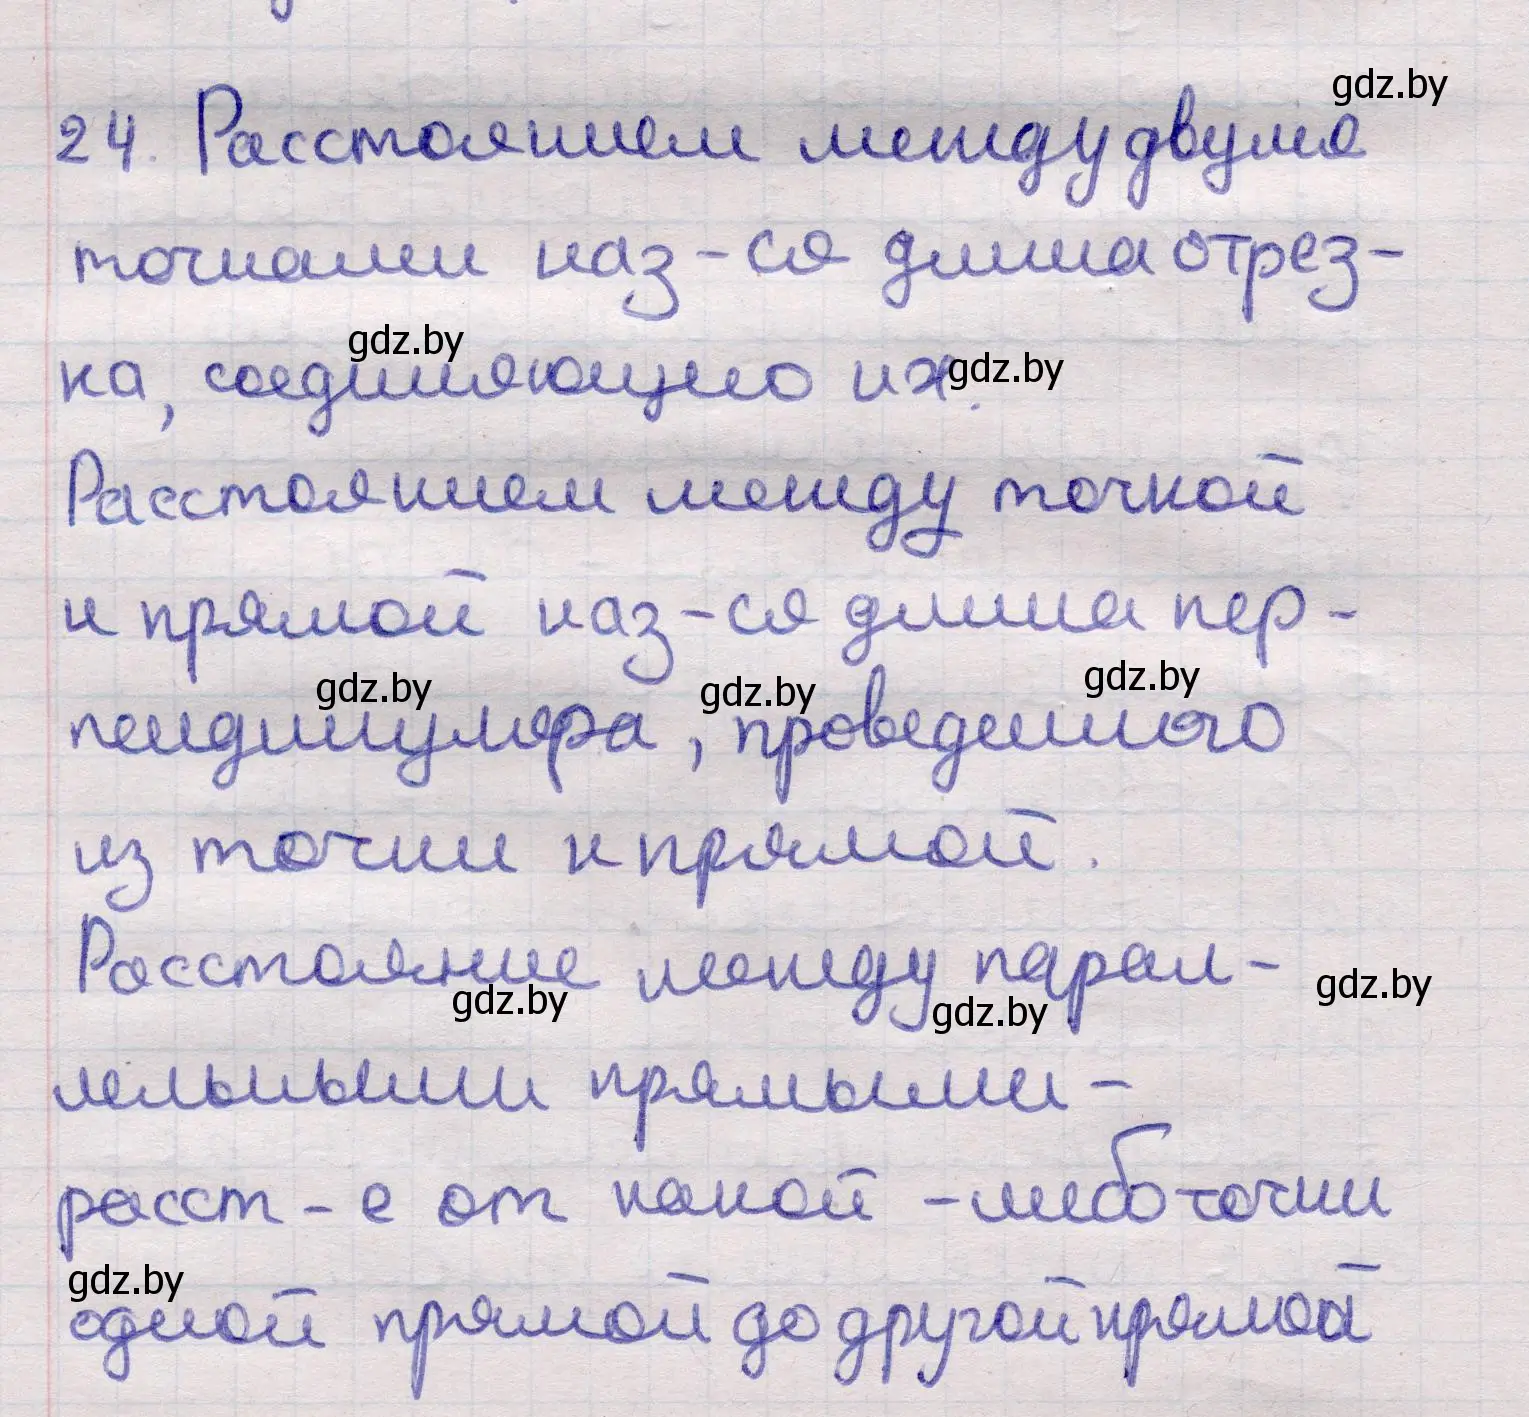 gdz.by
24. Расстоянием между двумя
точками наз-ся длина отрез-
gdz.by
gdz.by
ка, соединяющего их.
Расстоянием между точкой
и прямой наз-ся длина пер-
gdz.by
gdz.by
gdz.by
пендикуляра, проведенного
из точки к прямой.
Расстояние между парал-
gdz.by
gdz.by
gdz.by
лельными прямыми -
расст-е от какой-либо точки
gdz.by
одной прямой до другой прямой